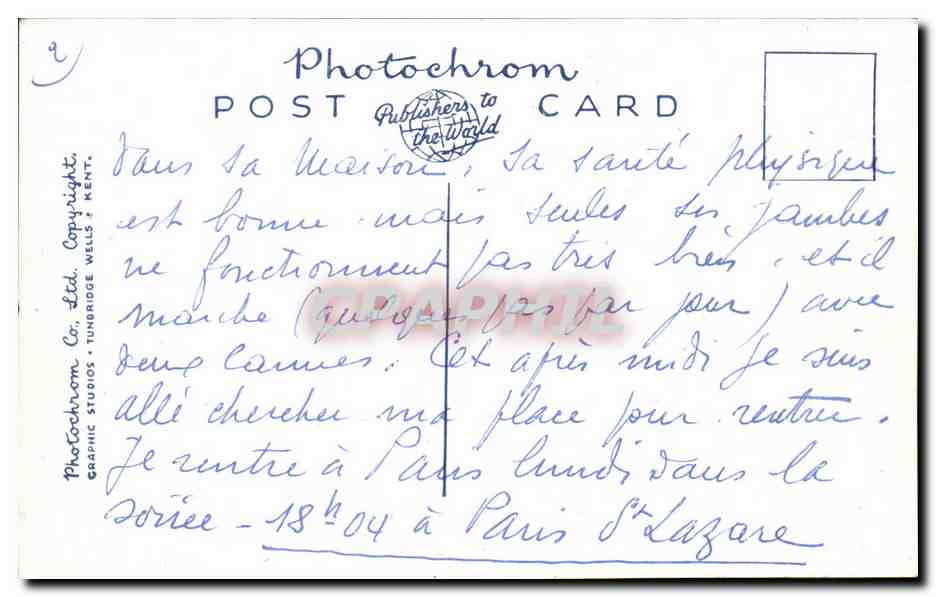 2
Photochrom
POST CARD
Publishers to
the World
Photochrom Co., Ltd. Copyright.
GRAPHIC STUDIOS • TUNBRIDGE WELLS • KENT.
dans sa maison, sa santé physique
est bonne mais seules ses jambes
ne fonctionnent pas très bien, et il
marche (quelques pas par jour) avec
deux cannes. Cet après midi je suis
allé chercher ma place pour rentrer.
Je rentre à Paris lundi dans la
soirée - 18h04 à Paris St Lazare
GRAPHIL